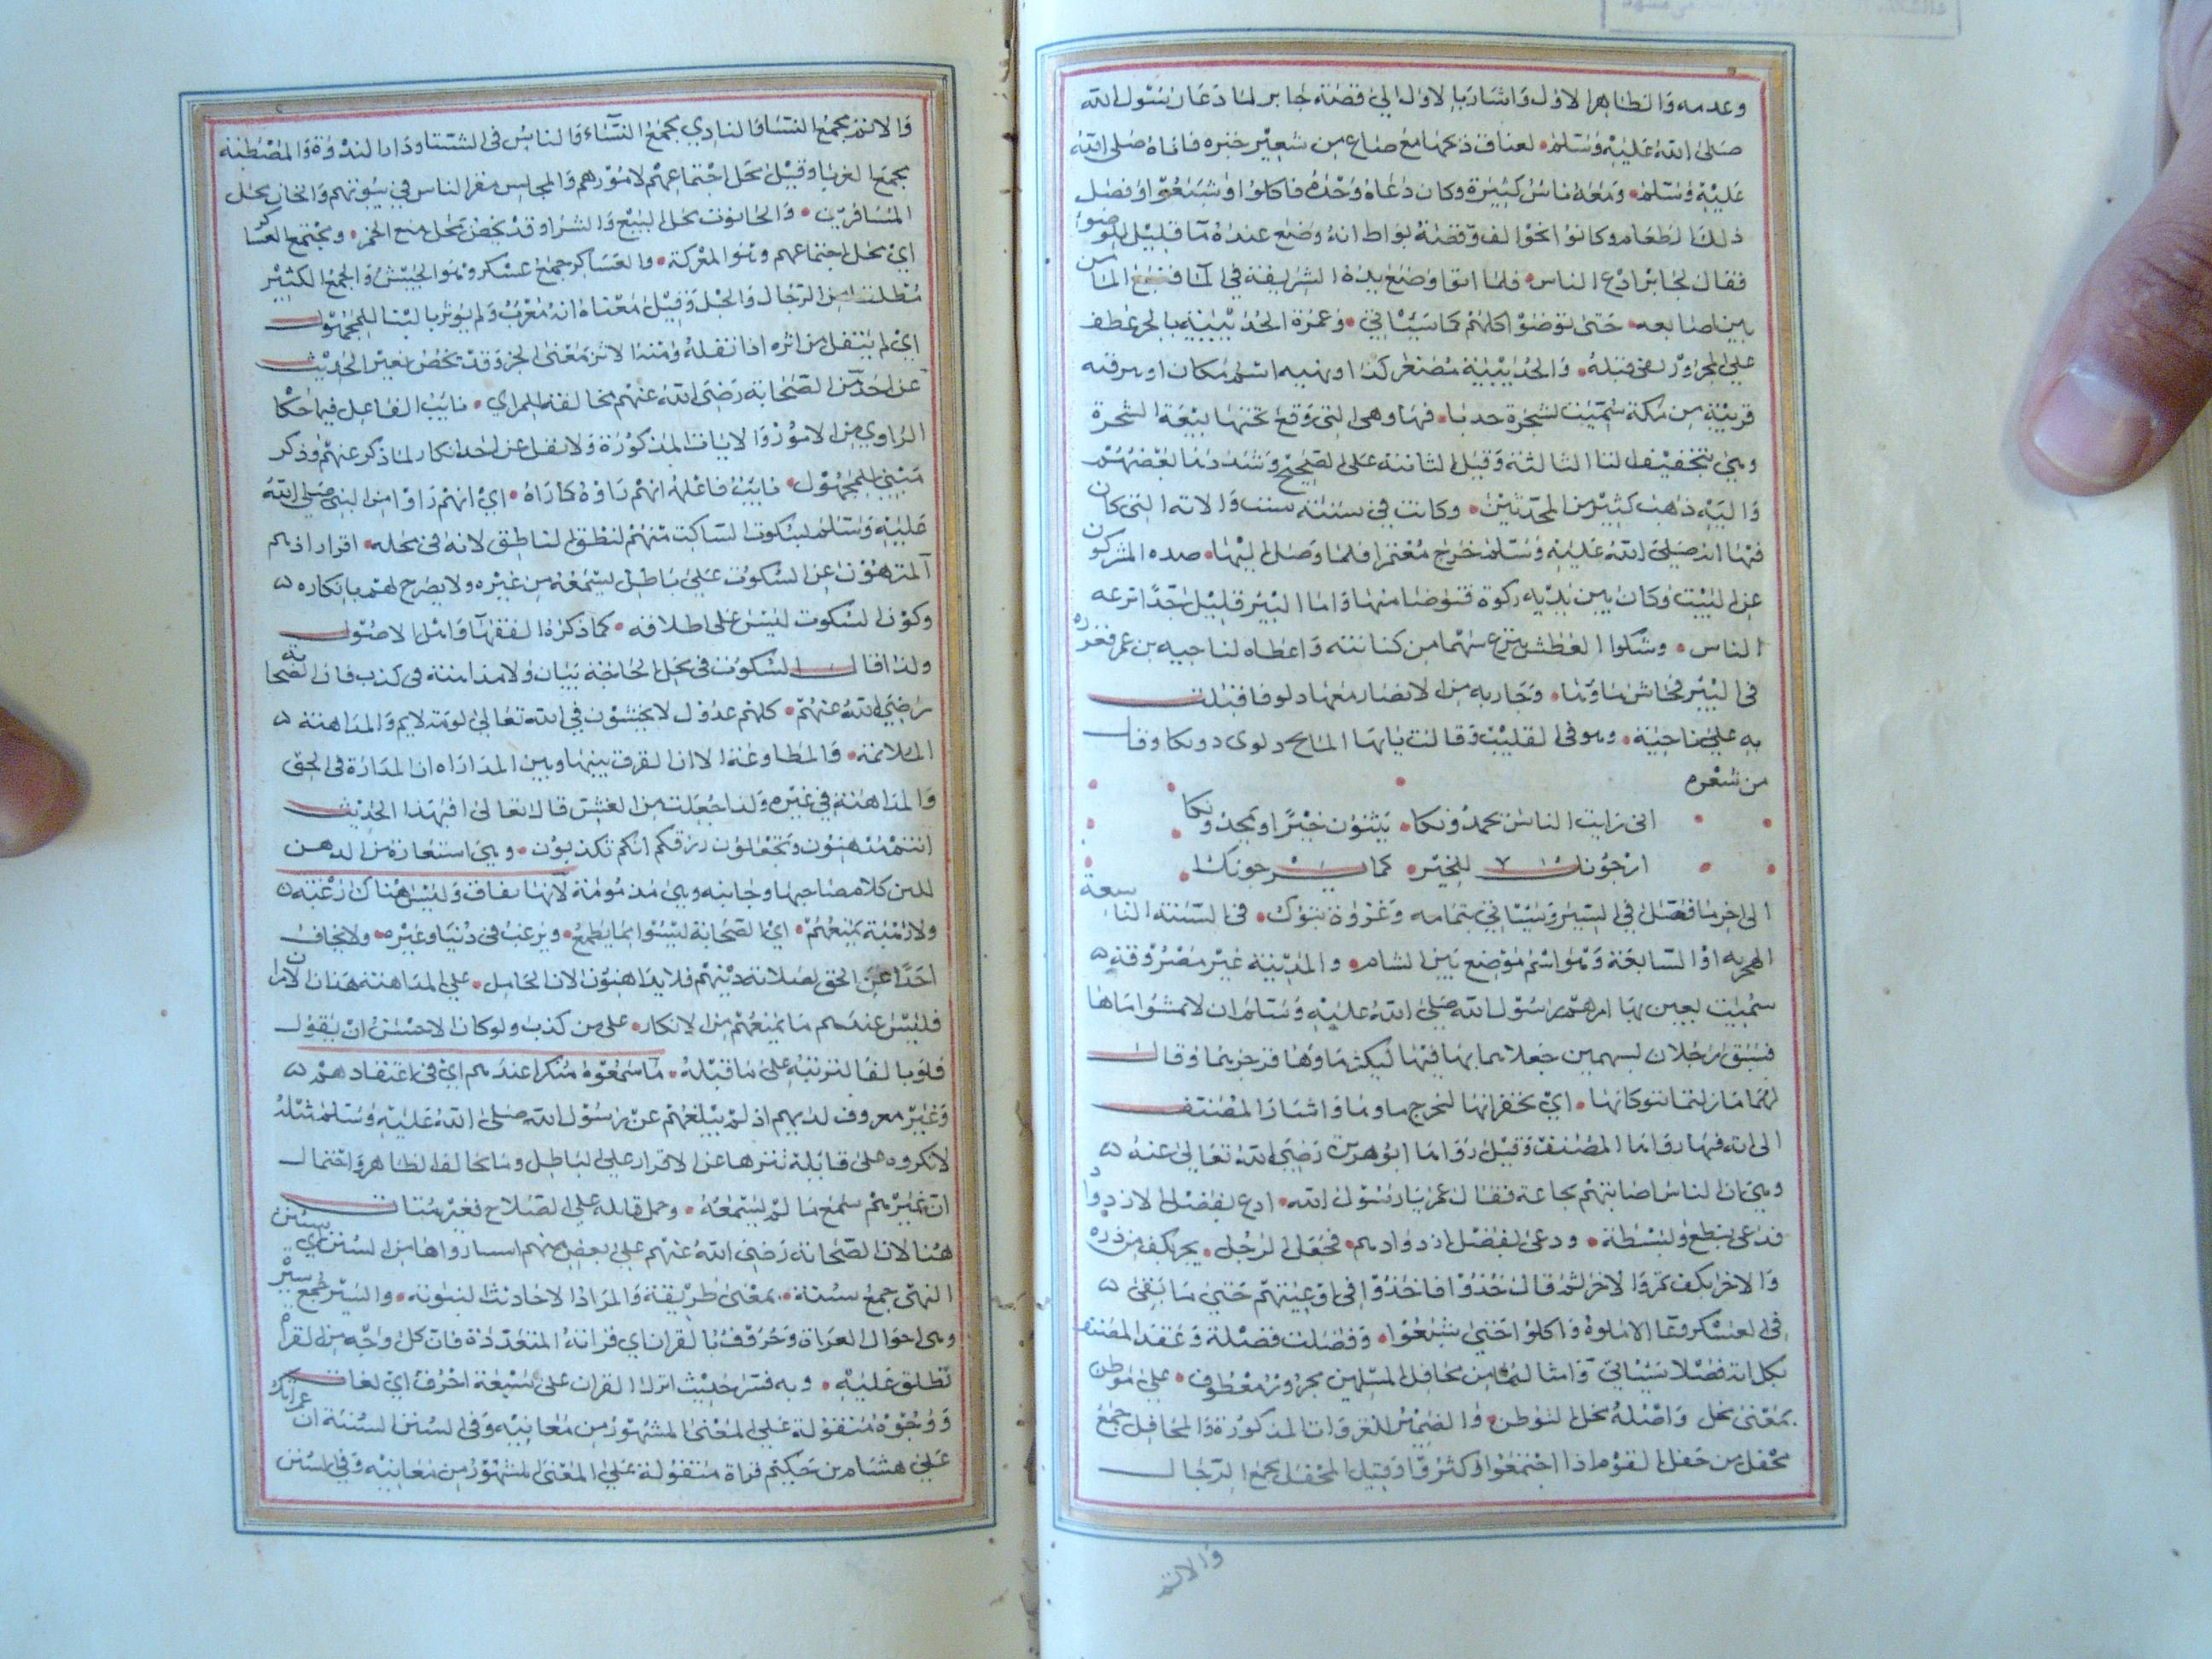 وعدمه والظاهر الاول واشار بالاول الي قصة جابر لما دعا رسول الله
صلى الله عليه وسلم لعناق ذبحها مع صاع من شعير خبزه فاتاه صلى الله
عليه وسلم ومعه ناس كثيرة وكان دعاه وحده فاكلوا وشبعوا وفضل
ذلك الطعام وكانوا نحوا لف وقصة بواط انه وضع عنده ما قليل
فقال لجابر ادع الناس فلما اتوا وضع يده الشريفة في الما فنبع الما
بين اصابعه حتى توضوا كلهم كما سيأتي وعمرة الحديبية بالجر عطف
علي المجرور قبله والحديبية مصغر اسم مكان
قرية من مكة سميت لشجرة حدبا فيها وهي التي وقع تحتها بيعة الشجرة
وهي بتخفيف الثالثة وقيل الثانية على الصحيح وشددها بعضهم
واليه ذهب كثير من المحدثين وكانت في سنة ست
فيها انه صلى الله عليه وسلم خرج معتمرا فلما وصل اليها صده المشركون
عن البيت وكان بين يديه ركوة فتوضا منها واما البير قليل جدا نزعه
الناس وشكوا العطش نزع سهما من كنانته واعطاه لناجيه بن عمر فغرزه
في البير فجاش ماؤها وجاريه من الانصار معها دلو فاقبلت
به على ناجية وهو في القليب وقالت يايها المايح دلوى دونكا وقال
من شعره
انى رايت الناس يحمدونكا يثنون خيرا ويمجدونكا
ارجوك للخير كما يرجونكا
الى اخر ما فصل في السير وسياتي بتمامه وغزوة تبوك في السنة التاسعة
الهجرية او السابعة وهو اسم موضع بين الشام والمدينة غير مصروفة
سميت بعين بها امرهم رسول الله صلى الله عليه وسلم ان لا تمسوا ماها
فسبق رجلان بسهمين جعلا بهما فيها ليكثر ماوها فزجرهما وقال
لهما ما زلتما تبوكانها اي تحفرانها لتخرج ماوها واشار المصنف
الى انه فيها رواها المصنف وقيل رواها ابو هريرة رضي الله تعالى عنه
وهي ان الناس اصابتهم مجاعة فقال عمر يا رسول الله ادع بفضل الازواد
فدعى بنطع وبسطه ودعى بفضل ازوادهم فجعل الرجل يجى بكف من ذره
والاخر بكف تمر والاخر ثم قال خذوا فاخذوا في اوعيتهم حتي ما بقى
في العسكر وعا الا ملوه واكلوا حتي شبعوا وفضلت فضلة وعقد المصنف
لكل انه فصلا سياتي وامثالها من محافل المسلمين مجرور معطوف علي موطن
بمعنى محل واصله محل التوطن والضمير للغزوات المذكورة والمحافل جمع
محفل من حفل القوم اذا اجتمعوا وكثروا وقيل المحفل مجمع الرجال
والاتم
والاتم مجمع النسا والنادي مجمع النساء والناس في الشتا ودار الندوة والمصطبة
مجمع الغربا وقيل محل اجتماعهم لامورهم والمجالس مقر الناس في بيوتهم والخان محل
المسافرين والحانوت محل البيع والشرا وقد يخص بمحل بيع الخمر ومجتمع العساكر
اي محل اجتماعهم وهو المعركة والعساكر جمع عسكر وهو الجيش والجمع الكثير
مطلقا من الرجال والخيل وقيل معناه انه معرب ولم يوثر بالبنا للمجهول
اي لم ينقل من اثره اذا نقله ومنه الاثر بمعنى الخبر وقد تخص بغير الحديث
عن احد من الصحابة رضي الله عنهم مخالفة للراوي نايب الفاعل فيما حكا
الراوي من الامور والايات المذكورة ولا نقل عن احد انكار لما ذكر عنهم وذكر
مبني للمجهول نايب فاعله انهم راوه كما راه اي انهم راوا من النبي صلى الله
عليه وسلم فسكوت الساكت منهم لنطق الناطق لانه في محله اقرار اذ هم
المنزهون عن السكوت علي باطل يسمعه من غيره ولا يصرح لهم بانكاره
وكون السكوت ليس على اطلاقه كما ذكره الفقها واهل الاصول
ولذا قال السكوت في محل الحاجة بيان ولا مداهنة في كذب فان الصحابة
رضي الله عنهم كلهم عدول لا يخشون في الله تعالى لومة لايم والمداهنة
الملائمة والمطاوعة الا ان الفرق بينها وبين المداراه ان المدارة في الحق
والمداهنة في غيره ولذا جعلت من الغش قال تعالى افبهذا الحديث
انتم مدهنون وتجعلون رزقكم انكم تكذبون وهي استعارة من الدهن
للين كلام صاحبها وجانبه وهي مذمومة لانها نفاق وليس هناك رغبة
ولا رهبة تمنعهم اي الصحابة ليسوا بما يطمع ويرغب في دنيا وغيره ولا يخاف
احدا عن الحق لصلابة دينهم فلا يداهنون لان الحامل علي المداهنة هذان الامران
فليس عندهم ما يمنعهم من الانكار على من كذب ولو كان الاحسن ان يقول
فلو بالفا لترتبه على ما قبله ما سمعوه منكرا عندهم اي في اعتقادهم
وغير معروف لديهم اذ لم يبلغهم عن رسول الله صلى الله عليه وسلم مثله
لانكروه على قايله تنزها عن الاقرار علي الباطل وما يخالف الظاهر واحتمال
ان غيرهم سمع ما لم يسمعه وحمل قايله علي الصلاح فغير مناف
هنا لان الصحابة رضي الله عنهم على بعضهم اشيا رواها من السنن
جمع سنة بمعنى طريقة والمراد الاحاديث النبوية والسير جمع سير
وهى احوال الغزاة وحروف القران اي قراءته المتعددة فان كل وجه من القران
تطلق عليه وبه فسر حديث انزل القران على سبعة احرف اي لغات
ووجوه منقولة علي المعنى المشهور من معانيه وفى السنن السنة ان عمر انكر
علي هشام بن حكيم قراة منقولة علي المعنى المشهور من معانيه وفي السنن